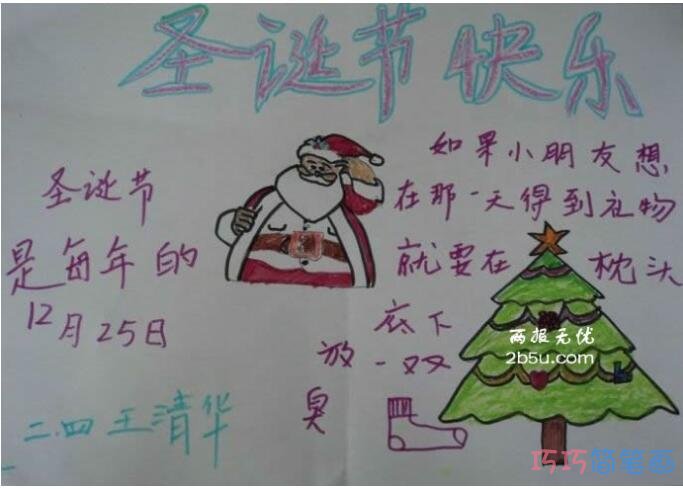 圣诞节快乐
圣诞节
是每年的
12月25日
二.四王清华
如果小朋友想
在那一天得到礼物
就要在枕头
底下
放一双
臭
两报无忧
2b5u.com
巧巧简笔画